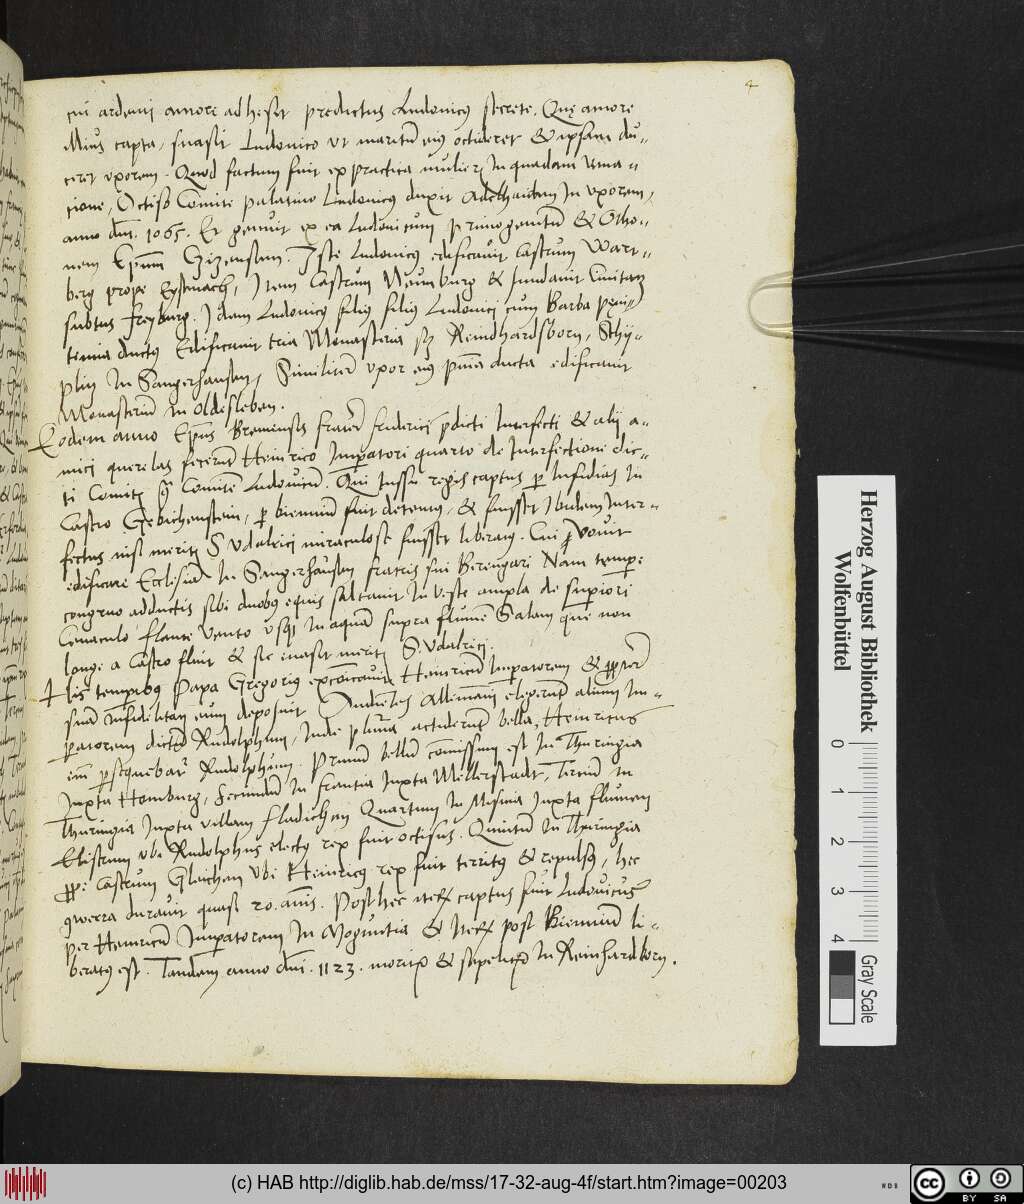 4
cui ardenti amore adhesit predictus Ludovicus secrete. Quę amore
illius capta, suasit Ludovico ut maritū eius occideret & ipsam du-
ceret uxorem. Quod factum fuit ex practica mulieris In quadam vena-
cione, Occiso Comite palatino Ludovicus duxit Adelhaidam In uxorem,
anno dni. 1065. Et genuit ex ea Ludovicum primogenitū & Otho-
nem Epum Cizensem. Iste Ludovicus edificavit Castrum Wart-
berg prope Eysenach, Item Castrum Neumburg & fundavit Civitatem
subtus Freyburg. Idem Ludovicus filius Ludovici cum Barba pęni-
tentia ductus Edificavit tria Monasteria sz Reindhardsborn, Schy-
plitz In Sangerhausen, Similiter uxor eius pnia ducta edificavit
Monasteriū In Oldesleben.
Eodem anno Epus Bremensis frater Friderici pdicti Interfecti & alij a-
mici querelas fecerūt Heinrico Imperatori quarto de Interfectione dic-
ti Comitis Comitē Ludovicū. Qui Iussu regis captus per Insidias In
Castro Gebichenstein, per bienniū fuit detentus, & fuisset Ibidem Inter-
fectus nisi meritis S Udalrici miraculose fuisset liberatus. Cui vovit
edificare Ecclesiā In Sangerhausen fratris sui Berengari Nam tempe
congruo adductis sibi duobus equis saltavit In veste ampla de superiori
Cenaculo flante vento usque In aquam supra flumē Salam que non
longe a Castro fluit & sic evasit meritis S. Udalrici.
His temporibus Papa Gregorius excōicavit Heinricū Imperatorem & propter
suam Infidelitatem eum deposuit Audientes Allemani elegerūt alium Im-
peratorem dictū Rudolphum, Inde plurima acciderūt bella, Heinricus
eni persequebatur Rudolphum. Primū bellū comissum est In Thuringia
Iuxta Homburg, Secundū In Francia Iuxta Mellerstadt, Terciū In
Thuringia Iuxta villam Fladichen Quartum In Misnia Iuxta flumen
Elistrum ubi Rudolphus electus rex fuit occisus. Quintū In Thuringia
prope Castrum Gleichen ubi Heinricus rex fuit territus & repulsus, hec
gwerra duravit quasi 20. annis. Post hec iterum captus fuit Ludovicus
per Heinricū Imperatorem In Moguntia & Iterum post Bienniū li-
beratus est. Tandem anno dni. 1123. moritur & sepelitur In Reinhardborn.
Herzog August Bibliothek
Wolfenbüttel
0 1 2 3 4
Gray Scale
(c) HAB http://diglib.hab.de/mss/17-32-aug-4f/start.htm?image=00203
WDB
cc BY SA